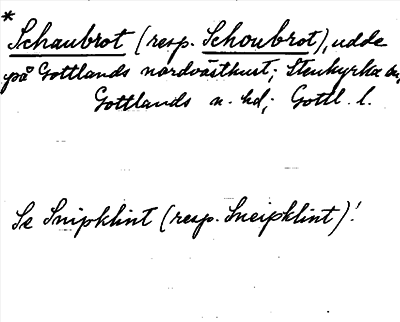 *
Schaubrot (resp. Schoubrot), udde
på Gottlands nordvästkust; Stenkyrka sn,
Gottlands n. hd; Gottl. l.
Se Snipklint (resp. Sneipklint)!